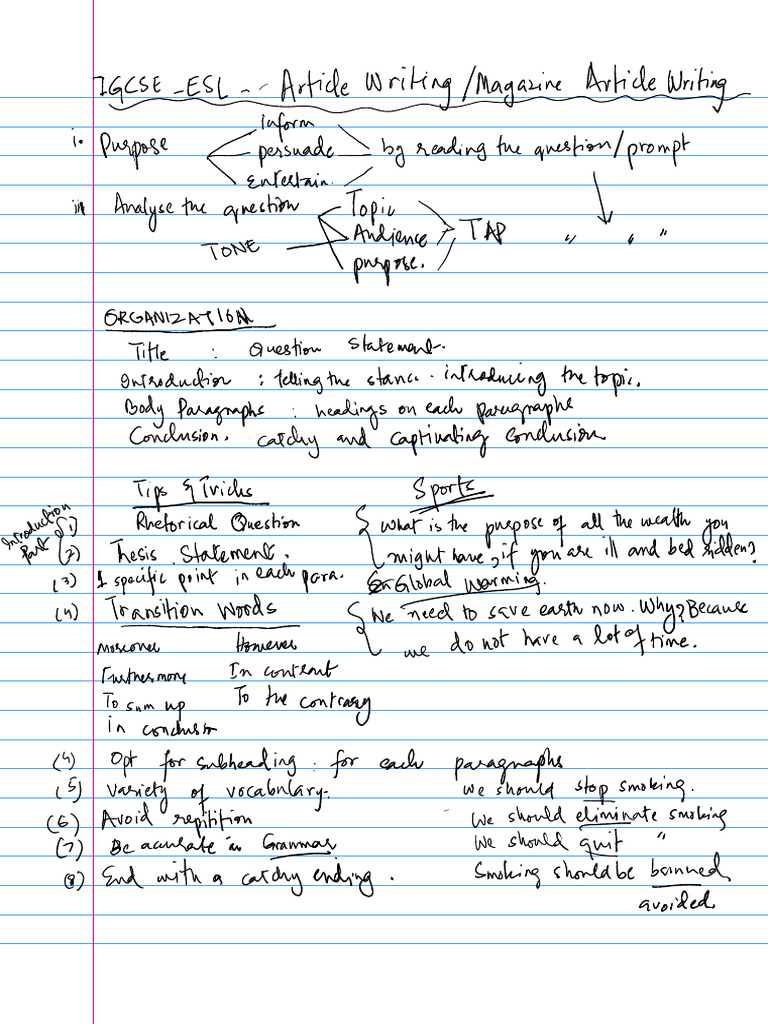 IGCSE - ESL - Article Writing / Magazine Article Writing
i. Purpose
inform
persuade
Entertain.
by reading the question / prompt
ii Analyse the question
Topic
Audience
purpose.
TAP
" " "
TONE
ORGANIZATION
Title : Question Statement.
Introduction : telling the stance. introducing the topic.
Body Paragraphs : headings on each paragraphs
Conclusion. catchy and captivating conclusion
Tips & Tricks
Sports
Introduction Part of
(1) Rhetorical Question
What is the purpose of all the wealth you
(2) Thesis Statement.
might have, if you are ill and bed ridden?
(3) 1 specific point in each para.
Global Warming.
(4) Transition Words
We need to save earth now. Why? Because
we do not have a lot of time.
Moreover However
Furthermore In contrast
To sum up To the contrary
in conclusion
(4) Opt for subheading : for each paragraphs
(5) Variety of vocabulary.
We should stop smoking.
(6) Avoid repitition
We should eliminate smoking
(7) Be accurate in Grammar
We should quit "
(8) End with a catchy ending.
Smoking should be banned
avoided